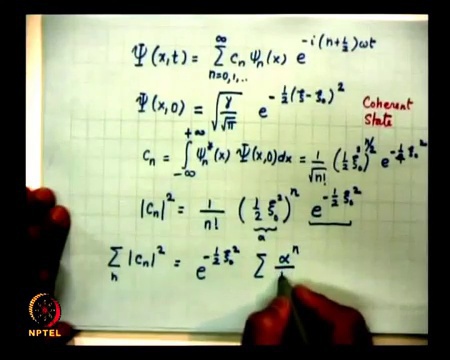 Ψ(x,t) = ∑_{n=0,1,..}^{∞} c_n ψ_n(x) e^{-i(n+½)ωt}
Ψ(x,0) = √(γ/√π) e^{-½(ξ-ξ₀)²}
Coherent State
c_n = ∫_{-∞}^{+∞} ψ_n*(x) Ψ(x,0)dx = 1/√n! (½ξ₀²)^{n/2} e^{-¼ξ₀²}
|c_n|² = 1/n! (½ξ₀²)^n e^{-½ξ₀²}
∑_n |c_n|² = e^{-½ξ₀²} ∑ α^n
NPTEL